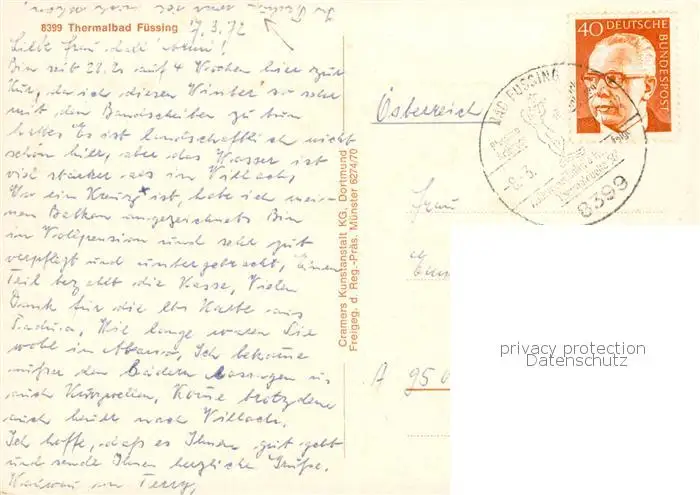 8399 Thermalbad Füssing 7.3.72
Liebe Frau
Bin seit 28.2. auf 4 Wochen hier zur
Kur, da ich diesen Winter so sehr
mit den Bandscheiben zu tun
hatte. Es ist landschaftlich nicht
schön hier, aber das Wasser ist
viel stärker als in Villach,
Wo ein Kreuz x ist, habe ich mei-
nen Balkon angezeichnet. Bin
in Vollpension und sehr gut
verpflegt und untergebracht, Einen
Teil bezahlt die Kasse, Vielen
Dank für die lbe Karte aus
Padua, Wie lange waren Sie
wohl in Abano, Ich bekomme
außer den Bädern Massagen u.
auch Kurzwellen, Komme trotzdem
auch heuer nach Villach.
Ich hoffe, daß es Ihnen gut geht
und sende Ihnen herzliche Grüße.
Cramers Kunstanstalt KG. Dortmund
Freigeg. d. Reg.-Präs. Münster 6274/70
40 DEUTSCHE BUNDESPOST
BAD FÜSSING
8399
Österreich
Frau
A 950
privacy protection
Datenschutz